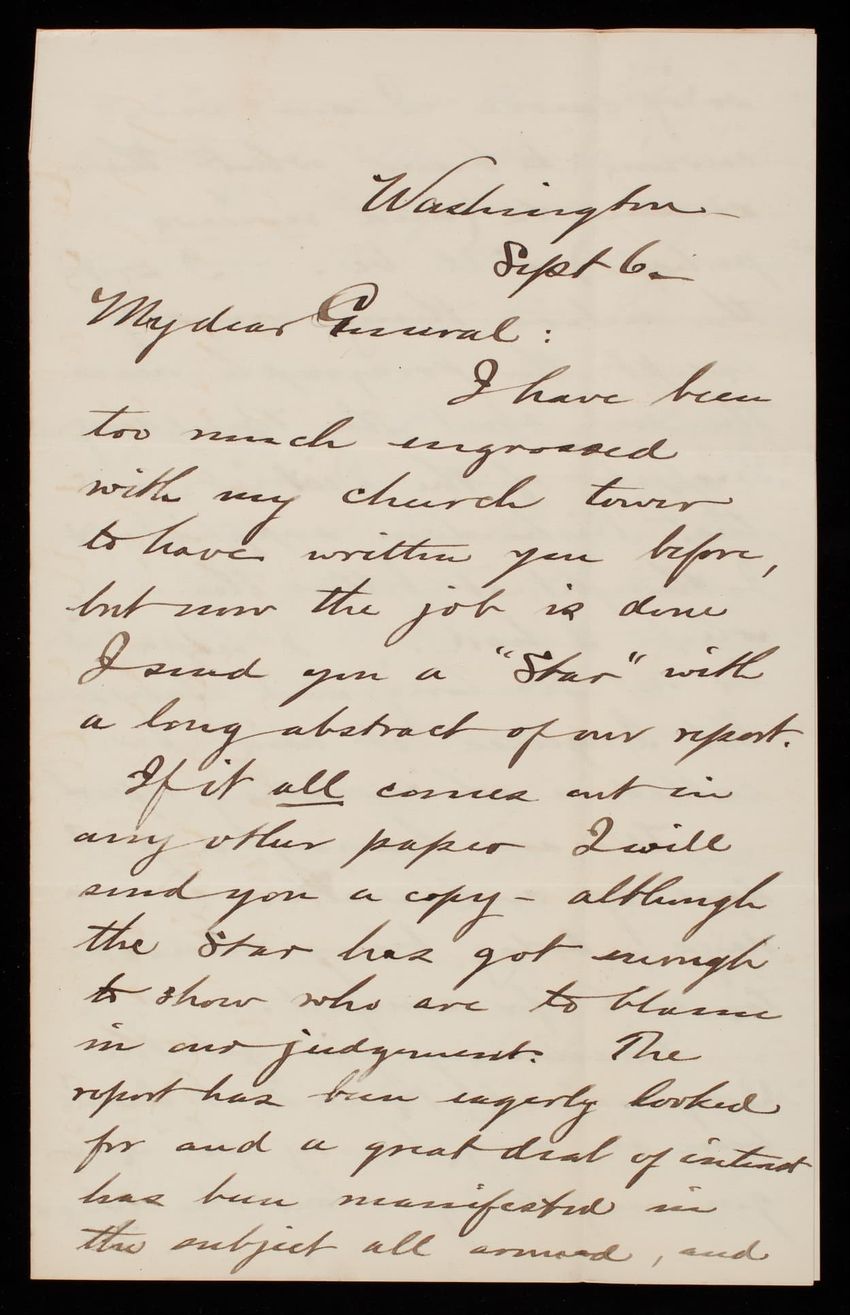 Washington
Sept 6.
My dear General :
I have been
too much engrossed
with my church tower
to have written you before,
but now the job is done
I send you a "Star" with
a long abstract of our report.
If it all comes out in
any other paper I will
send you a copy - although
the Star has got enough
to show who are to blame
in our judgement. The
report has been eagerly looked
for and a great deal of interest
has been manifested in
the subject all around, and